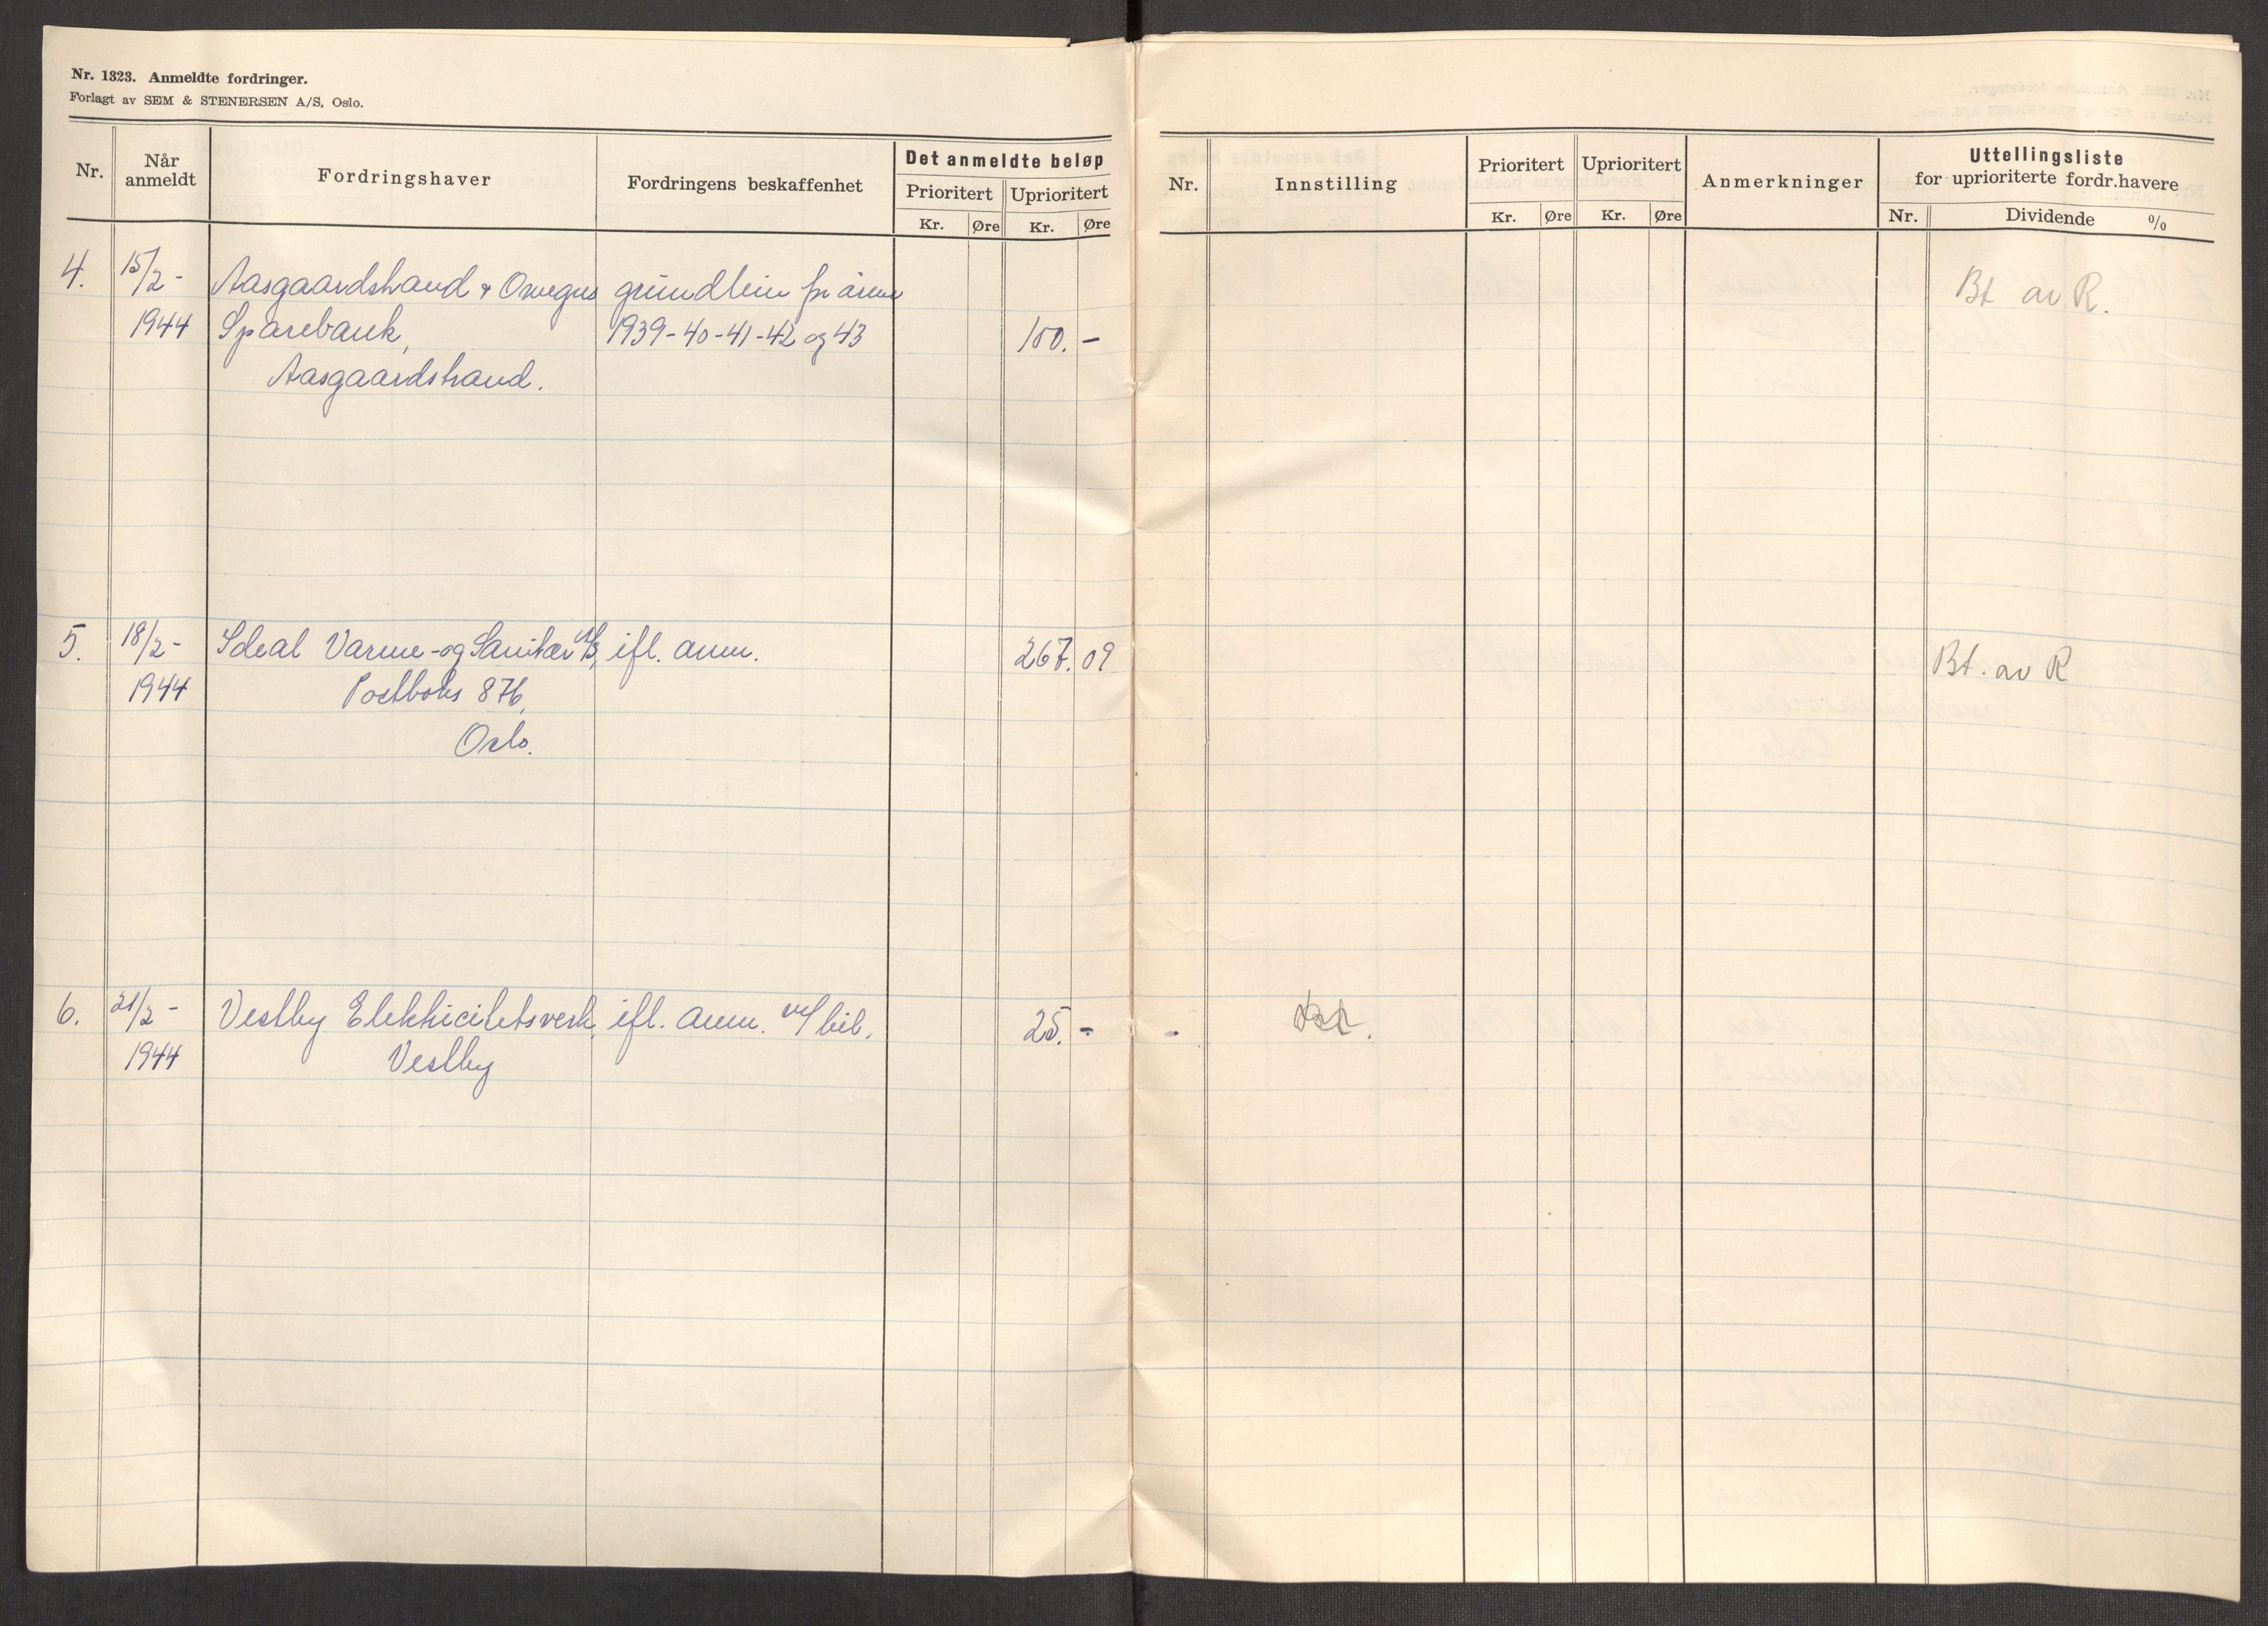 Nr. 1323. Anmeldte fordringer.
Forlagt av SEM & STENERSEN A/S, Oslo.
Nr. Når anmeldt Fordringshaver Fordringens beskaffenhet Det anmeldte beløp
Prioritert Uprioritert
Kr. Øre Kr. Øre
4. 15/2- Aasgaardstrand & Omegns grundleie for årene
1944 Sparebank, 1939-40-41-42 og 43 100. -
Aasgaardstrand.
5. 18/2- Ideal Varme- og Sanitær A/S, ifl. anm. 267. 09
1944 Postboks 876,
Oslo.
6. 21/2- Vestby Elektricitetsverk, ifl. anm. m/ bil. 25. -
1944 Vestby
Nr. Innstilling Prioritert Uprioritert Anmerkninger Uttellingsliste
for uprioriterte fordr.havere
Kr. Øre Kr. Øre Nr. Dividende %
Bt av R.
Bt. av R
-